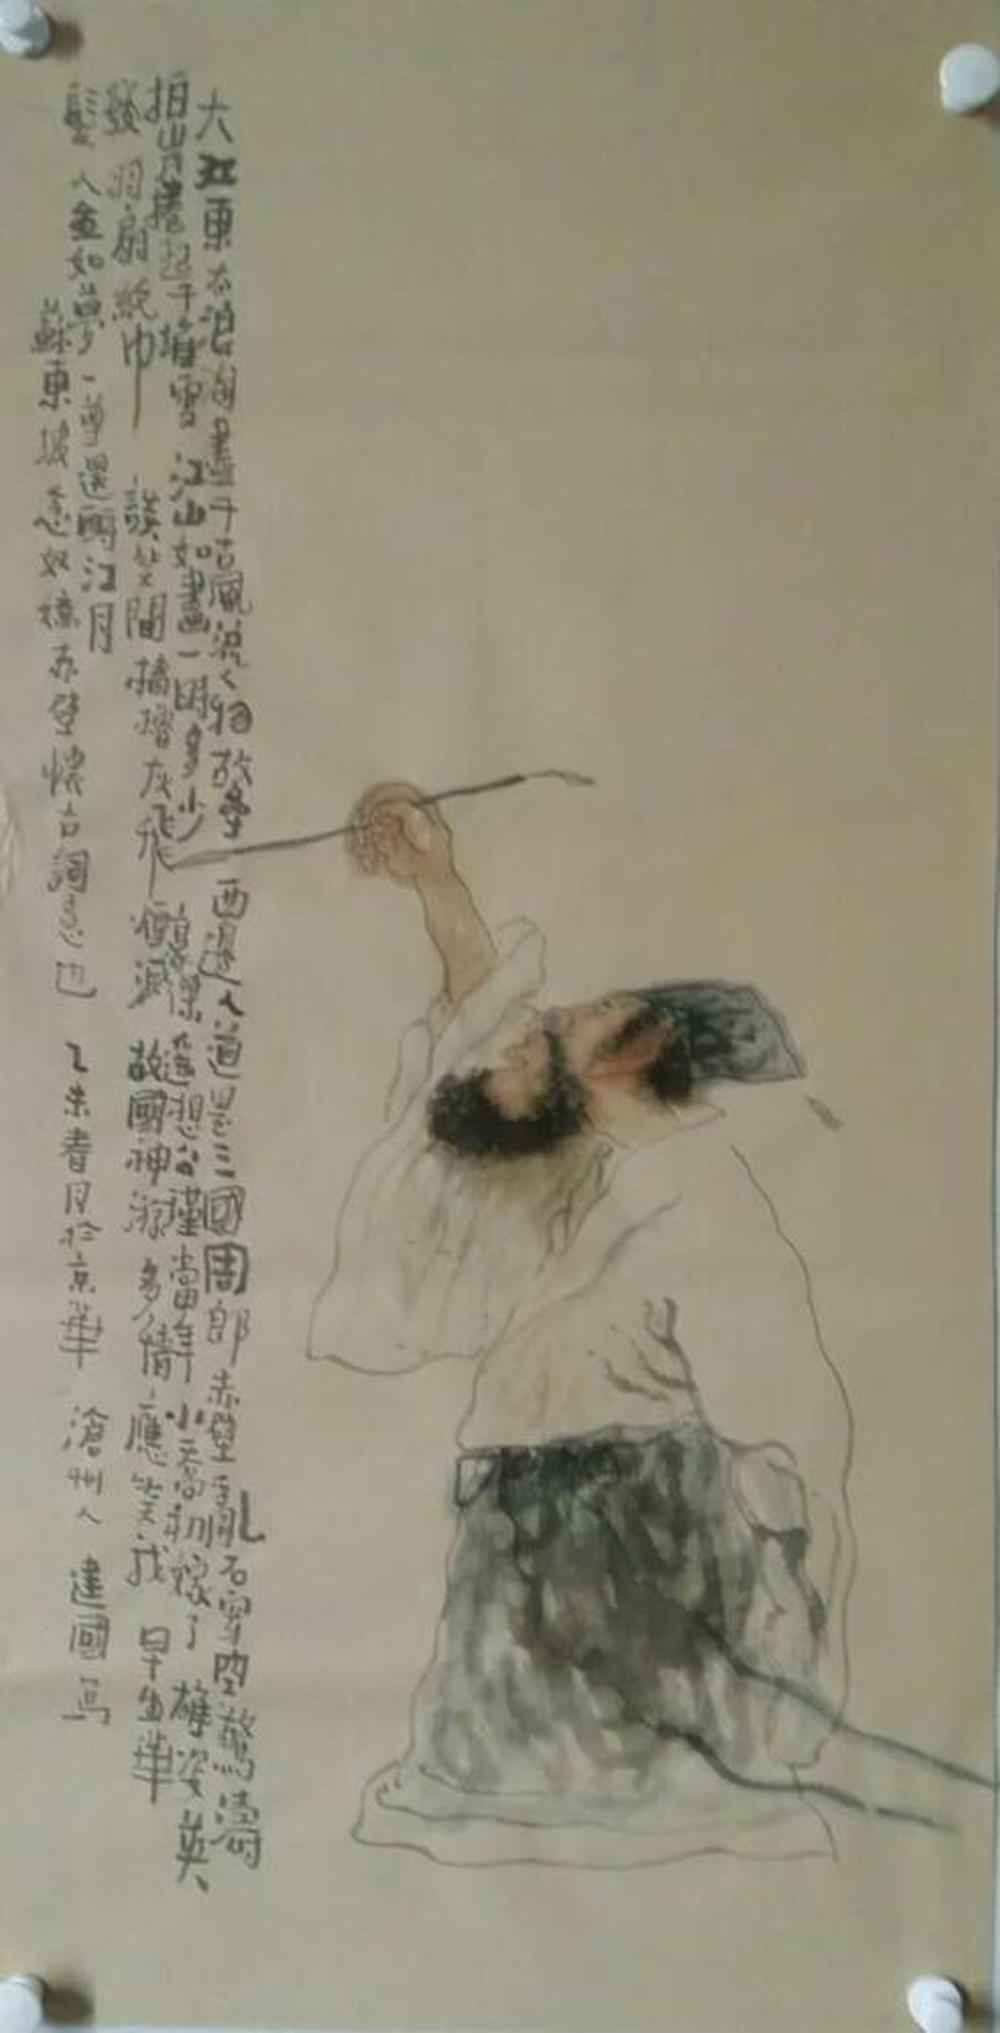 大江東去浪淘盡千古風流人物故壘西邊人道是三國周郎赤壁亂石穿空驚濤
拍岸捲起千堆雪江山如畫一時多少豪傑遙想公瑾當年小喬初嫁了雄姿英
發羽扇綸巾談笑間檣櫓灰飛煙滅故國神遊多情應笑我早生華
髮人生如夢一尊還酹江月
蘇東坡念奴嬌赤壁懷古詞意也乙未春月於京華滄州人建國寫